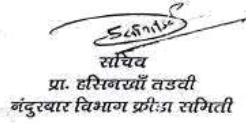 सचिव
प्रा. हसिनखाँ तडवी
नंदुरबार विभाग क्रीडा समिती